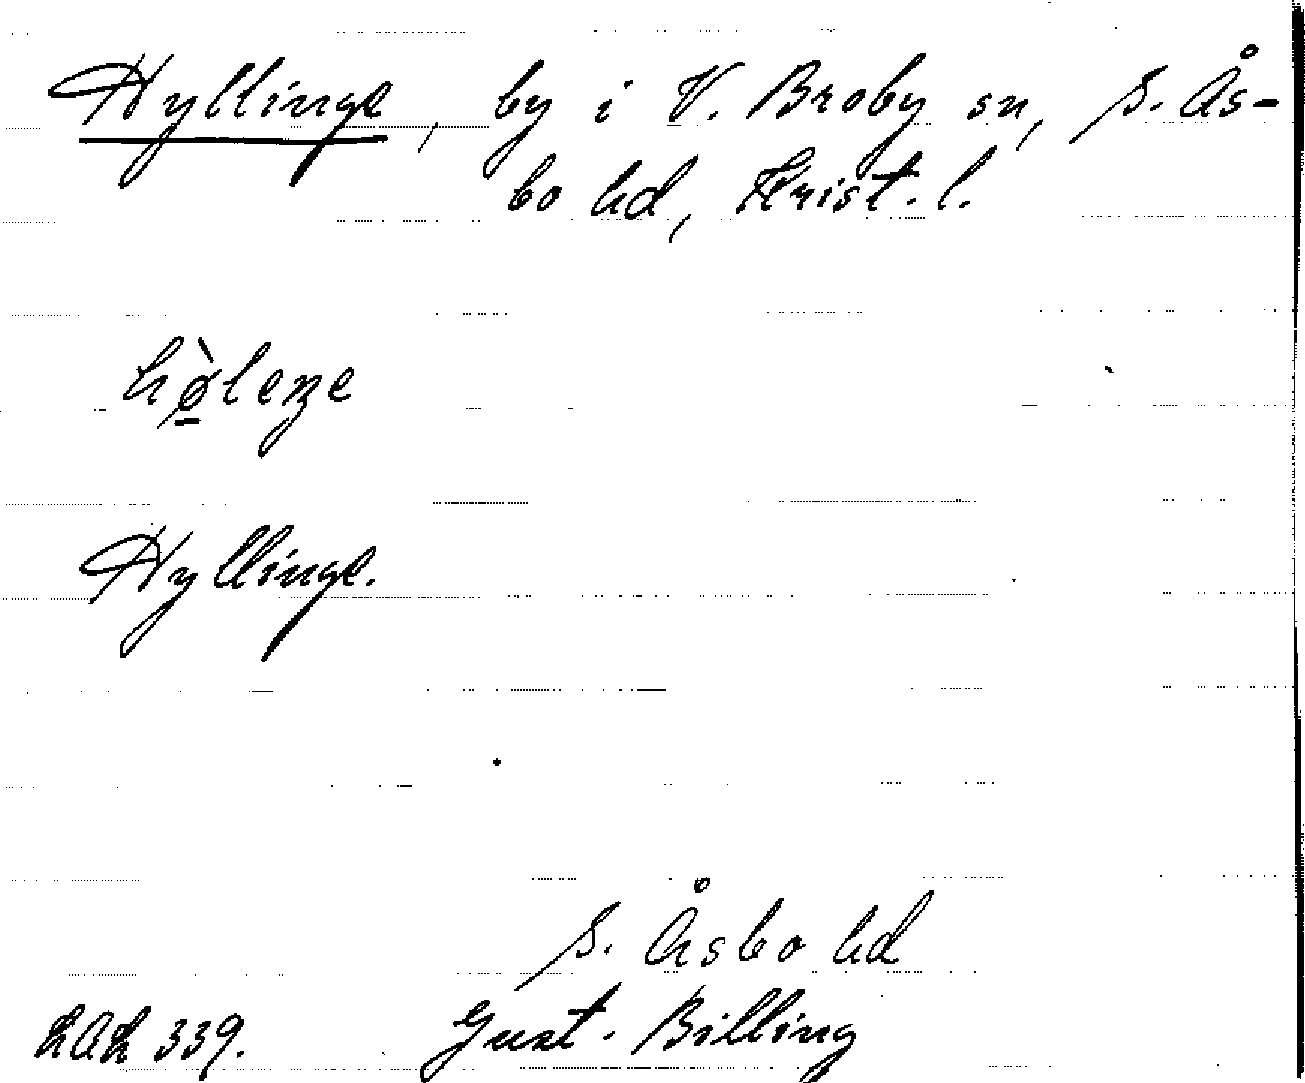 Hyllinge, by i V. Broby sn, S. Ås-
bo hd, Krist. l.
Hyllinge.
S. Åsbo hd
LAL 339. Gust. Billing